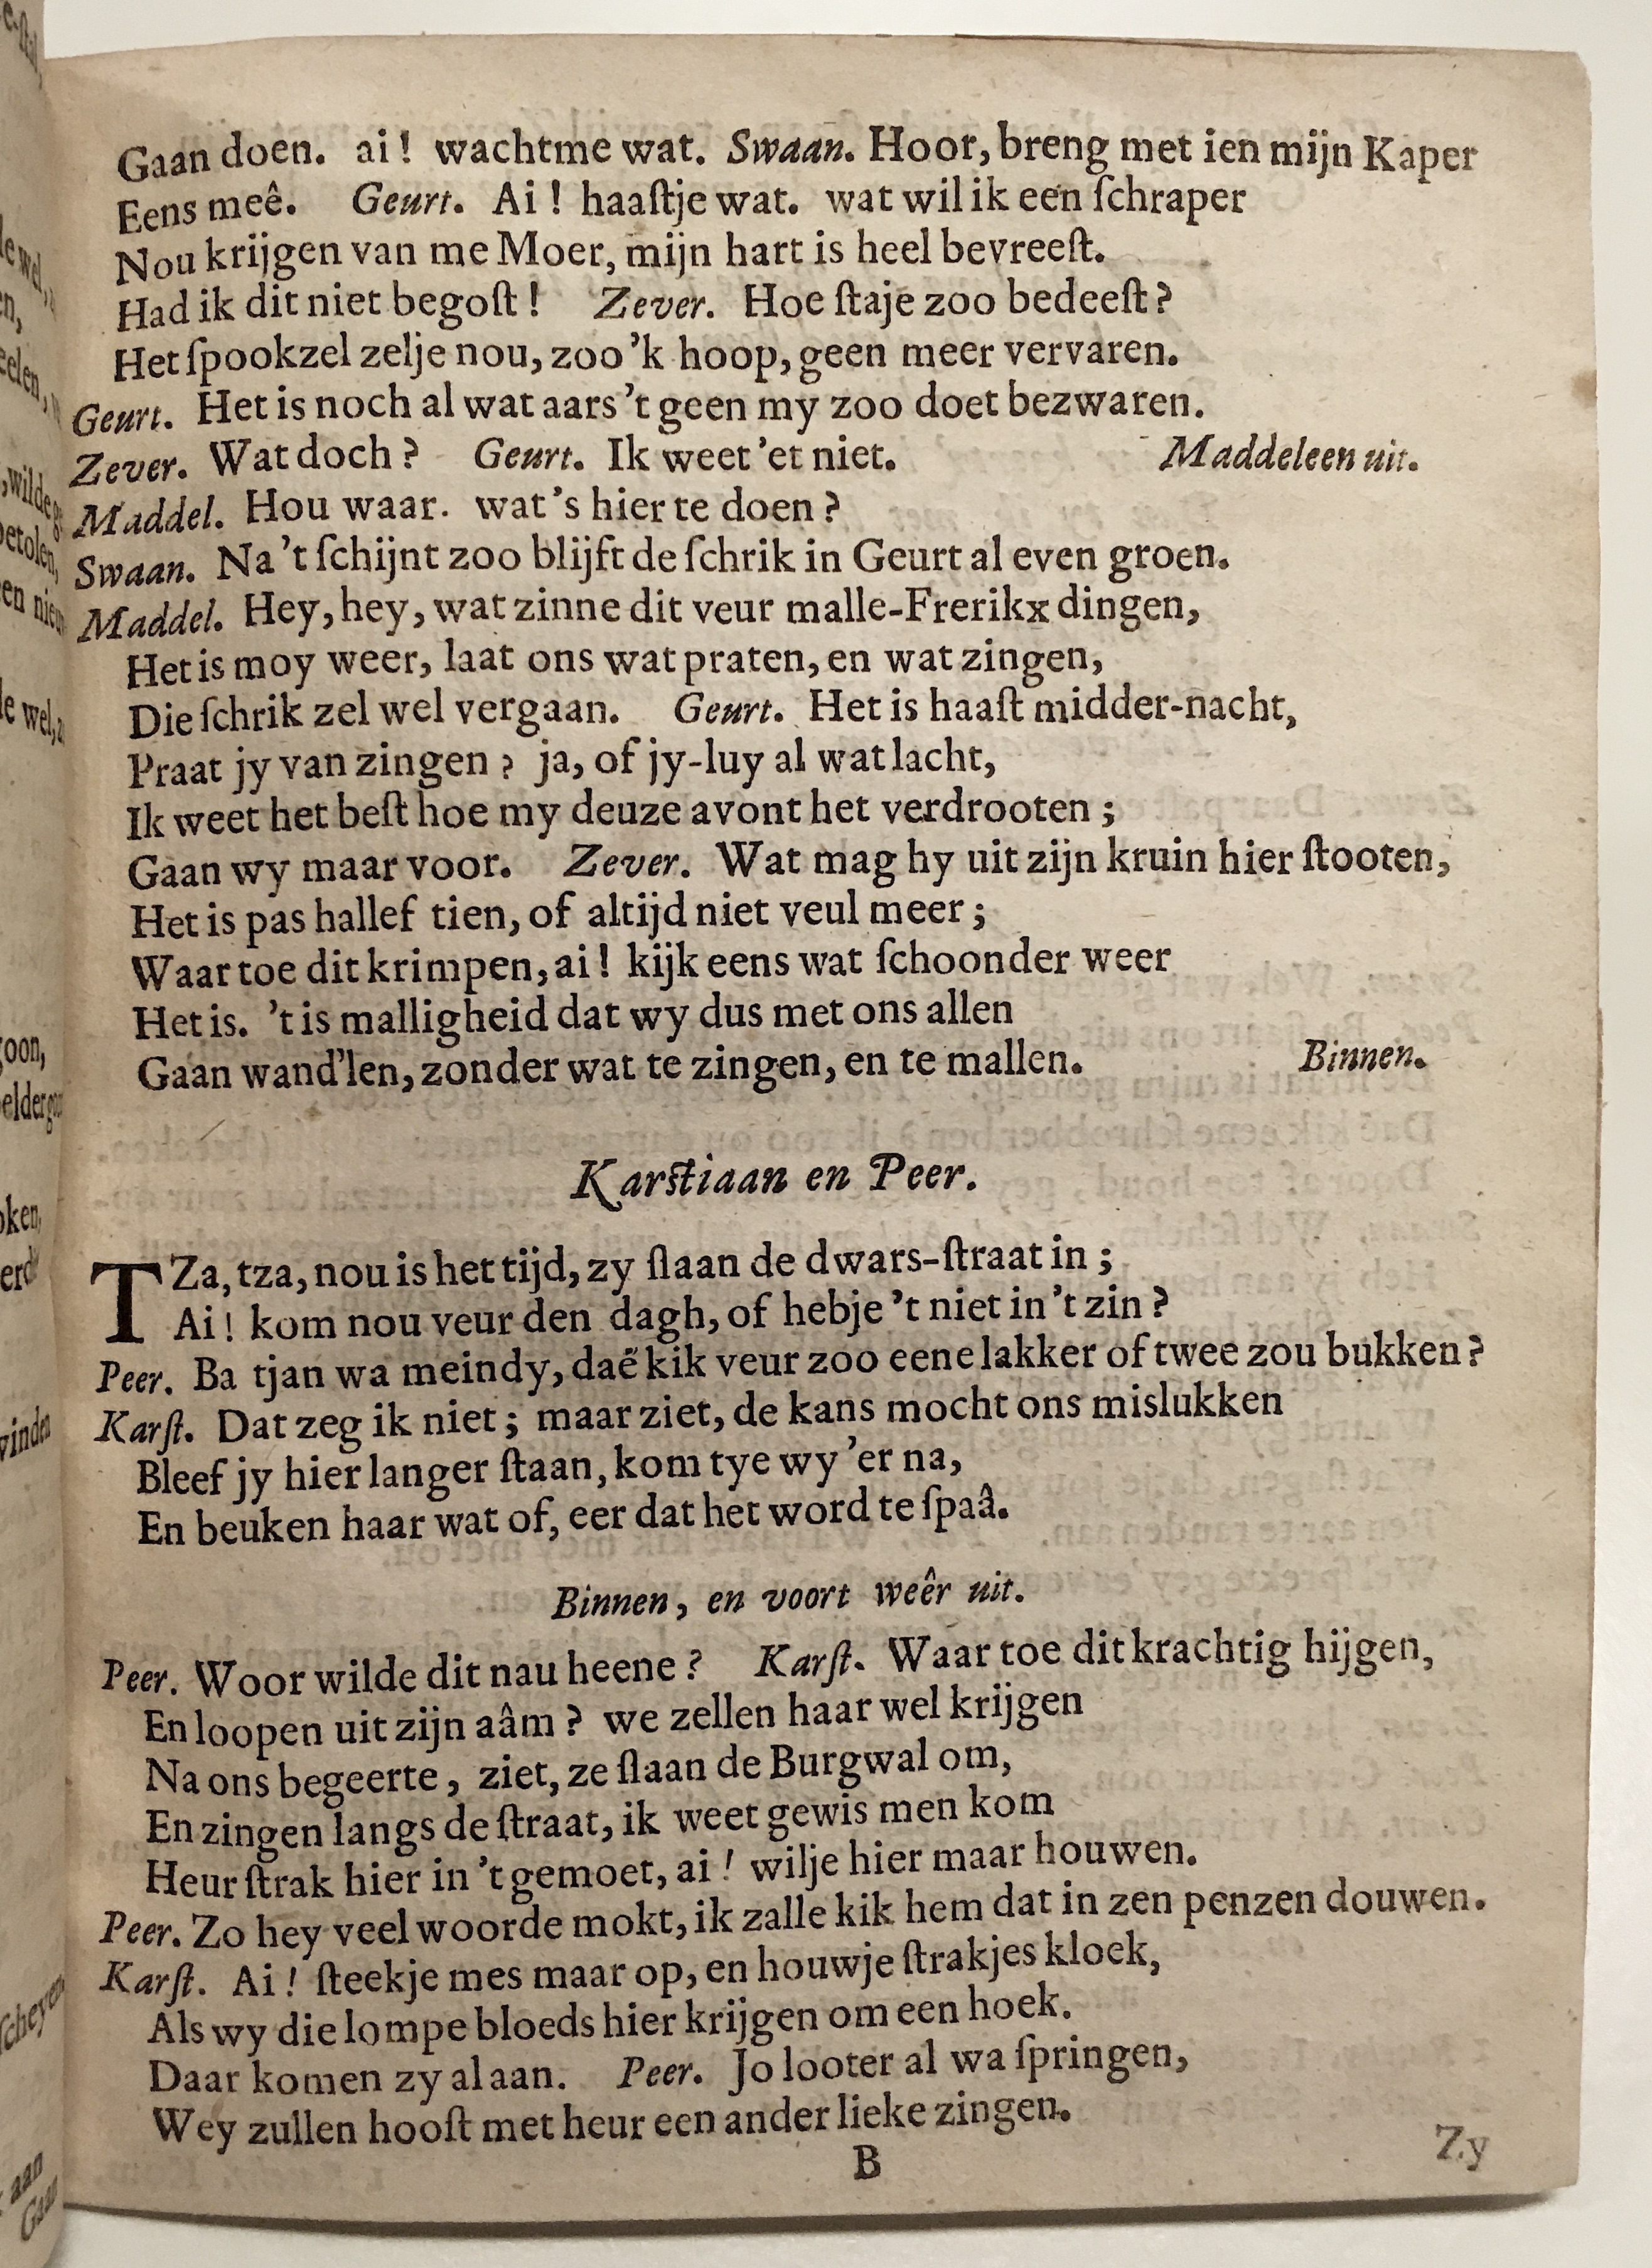 Gaan doen. ai! wachtme wat. Swaan. Hoor, breng met ien mijn Kaper
Eens meê. Geurt. Ai! haaſtje wat. wat wil ik een ſchraper
Nou krijgen van me Moer, mijn hart is heel bevreeſt.
Had ik dit niet begoſt! Zever. Hoe ſtaje zoo bedeeſt?
Het ſpookzel zelje nou, zoo 'k hoop, geen meer vervaren.
Geurt. Het is noch al wat aars 't geen my zoo doet bezwaren.
Zever. Wat doch? Geurt. Ik weet 'et niet. Maddeleen uit.
Maddel. Hou waar. wat's hier te doen?
Swaan. Na 't ſchijnt zoo blijft de ſchrik in Geurt al even groen.
Maddel. Hey, hey, wat zinne dit veur malle-Frerikx dingen,
Het is moy weer, laat ons wat praten, en wat zingen,
Die ſchrik zel wel vergaan. Geurt. Het is haaſt midder-nacht,
Praat jy van zingen? ja, of jy-luy al wat lacht,
Ik weet het beſt hoe my deuze avont het verdrooten;
Gaan wy maar voor. Zever. Wat mag hy uit zijn kruin hier ſtooten,
Het is pas hallef tien, of altijd niet veul meer;
Waar toe dit krimpen, ai! kijk eens wat ſchoonder weer
Het is. 't is malligheid dat wy dus met ons allen
Gaan wand'len, zonder wat te zingen, en te mallen. Binnen.
Karſtiaan en Peer.
TZa, tza, nou is het tijd, zy ſlaan de dwars-ſtraat in;
Ai! kom nou veur den dagh, of hebje 't niet in 't zin?
Peer. Ba tjan wa meindy, daë kik veur zoo eene lakker of twee zou bukken?
Karſt. Dat zeg ik niet; maar ziet, de kans mocht ons mislukken
Bleef jy hier langer ſtaan, kom tye wy 'er na,
En beuken haar wat of, eer dat het word te ſpaâ.
Binnen, en voort weêr uit.
Peer. Woor wilde dit nau heene? Karſt. Waar toe dit krachtig hijgen,
En loopen uit zijn aâm? we zellen haar wel krijgen
Na ons begeerte, ziet, ze ſlaan de Burgwal om,
En zingen langs de ſtraat, ik weet gewis men kom
Heur ſtrak hier in 't gemoet, ai! wilje hier maar houwen.
Peer. Zo hey veel woorde mokt, ik zalle kik hem dat in zen penzen douwen.
Karſt. Ai! ſteekje mes maar op, en houwje ſtrakjes kloek,
Als wy die lompe bloeds hier krijgen om een hoek.
Daar komen zy al aan. Peer. Jo looter al wa ſpringen,
Wey zullen hooſt met heur een ander lieke zingen.
B Zy